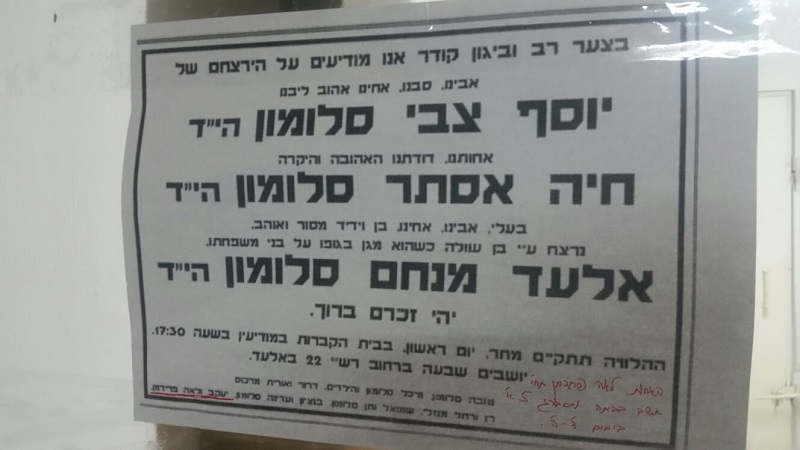 בצער רב וביגון קודר אנו מודיעים על הירצחם של
אבינו, סבנו, אחינו אהוב ליבנו
יוסף צבי סלומון הי״ד
אחותנו, דודתנו האהובה והיקרה
חיה אסתר סלומון הי״ד
בעלי, אבינו, אחינו, בן וידיד מסור ואוהב,
נרצח ע״י בן עוולה כשהוא מגן בגופו על בני משפחתו,
אלעד מנחם סלומון הי״ד
יהי זכרם ברוך.
ההלוויה תתקיים מחר, יום ראשון, בבית הקברות במודיעין בשעה 17:30.
יושבים שבעה ברחוב רש״י 22 באלעד.
טובה סלומון, מיכל סלומון והילדים, דרור ואורית מרכוס
רן ורחל מנטל, שמואל וחן סלומון, בנציון ועדינה סלומון, יעקב ולאה פרידמן
האחות לאה